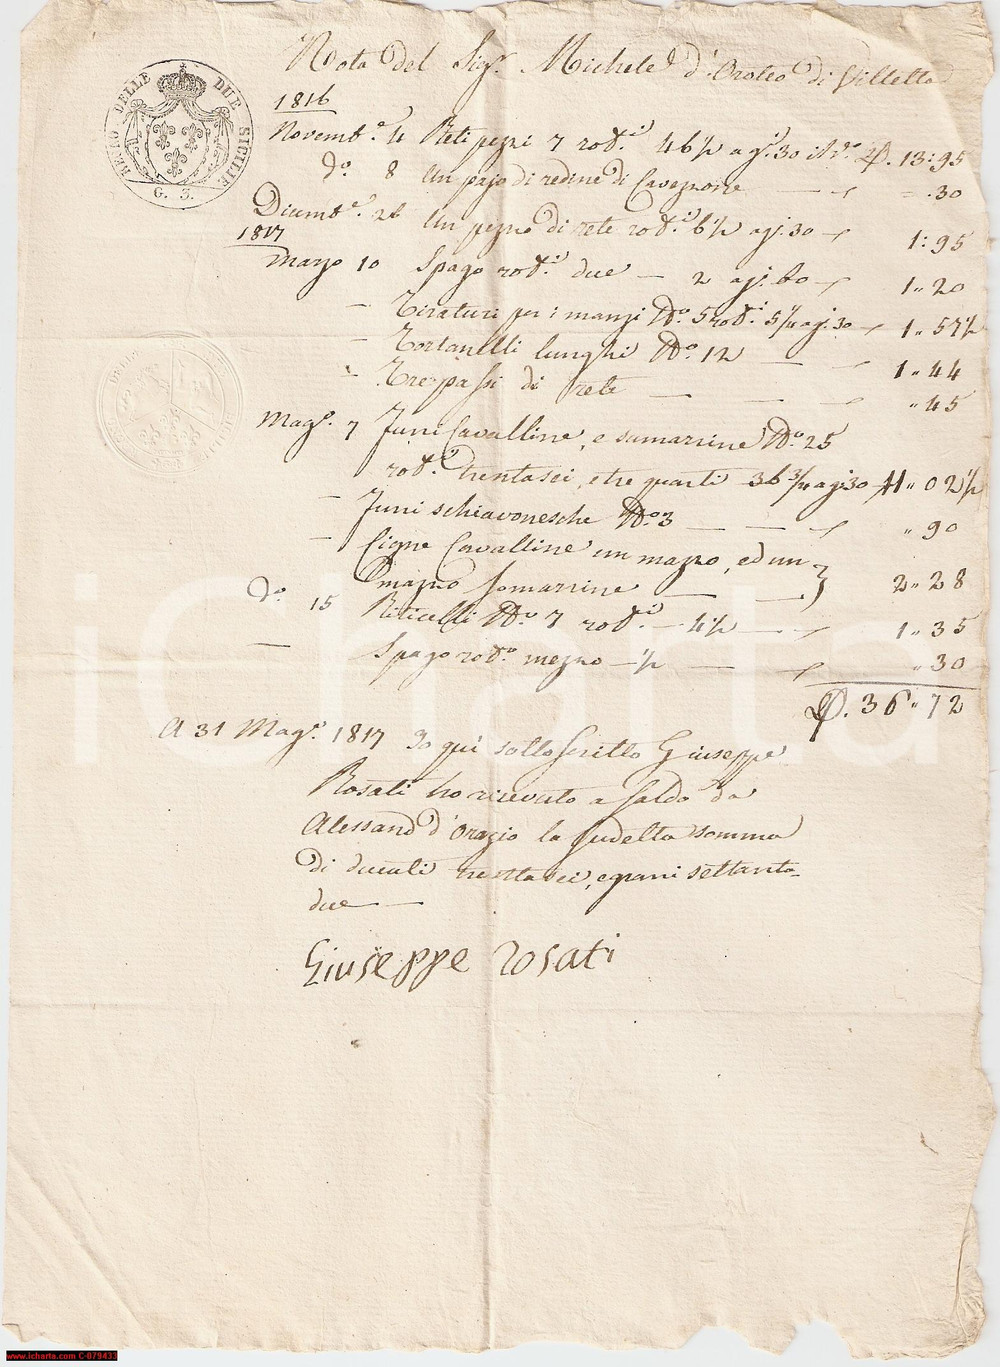 Nota del Sig.r Michele d'Orazio di Villetta
REGNO DELLE DUE SICILIE
G. 3.
1816
Novemb.e 4 Reti pezzi 7 rot.i 46½ a g.i 30 il r.o D. 13:95
D.o 8 Un pajo di redine di Cavezzone — = .30
Dicemb.e 26 Un pezzo di rete rot.i 6½ a g.i 30 — 1:95
1817
Marzo 10 Spago rot.i due — 2 a g.i 60 — 1.. 20
— Tiraturi per i manzi N.o 5 rot.i 5¼ a g.i 30 — 1.. 57½
— Tortanelli lunghi N.o 12 — 1.. 44
— Tre passi di rete — .. 45
Mag.o 7 Funi Cavalline, e somarrine N.o 25
rot.i trentasei, e tre quarti 36¾ a g.i 30 11.. 02½
— Funi schiavonesche N.o 3 — .. 90
— Cigne Cavalline un mazzo, ed un
mazzo somarrine — 2.. 28
D.o 15 Riticelli N.o 7 rot.i — 4½ — 1.. 35
— Spago rot.o mezzo — ½ — .. 30
D. 36.. 72
A 31 Mag.o 1817 Io qui sottoscritto Giuseppe
Rosati ho ricevuto a saldo da
Alessand.o d'Orazio la sudetta somma
di ducati trentasei, e grani settanta-
due —
Giuseppe rosati
iCharta
www.icharta.com C-079433